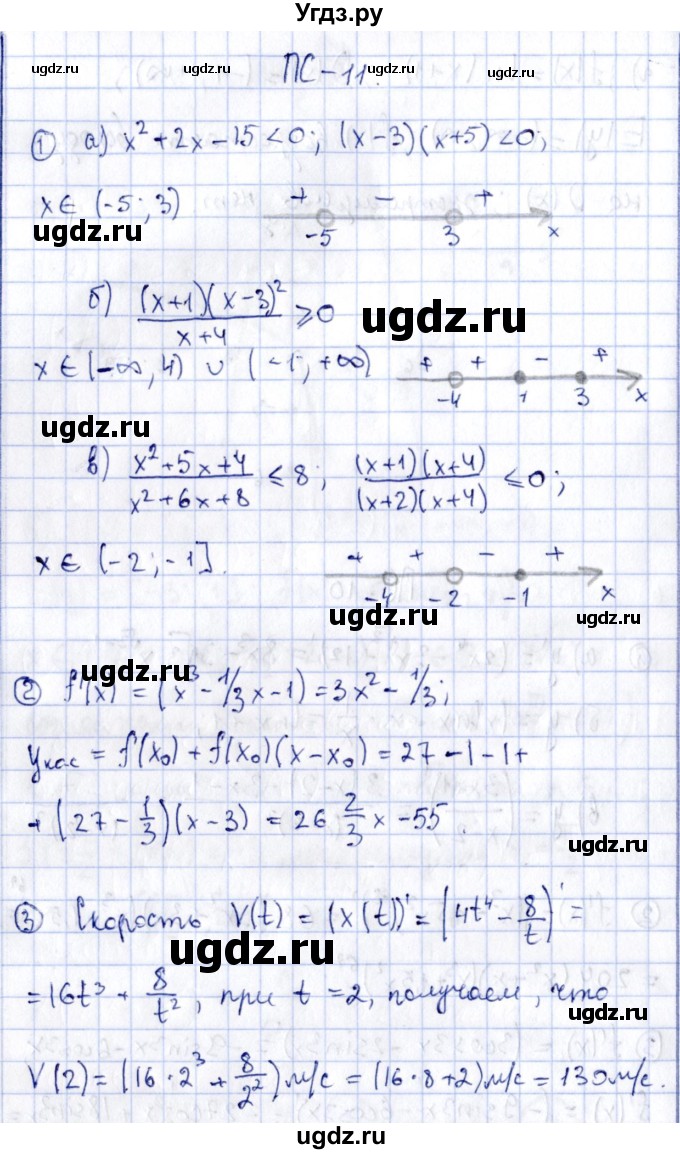 Угдз.ру
ugdz.ru ugdz.ru ugdz.ru ugdz.ru
ПС-11.
① а) x² + 2x - 15 < 0; (x-3)(x+5) < 0;
x ∈ (-5; 3) + - +
-5 3 x
ugdz.ru
б) (x+1)(x-3)² / x+4 ⩾ 0
ugdz.ru
x ∈ (-∞, 4) ∪ (-1, +∞) + + - +
-4 1 3 x
ugdz.ru
в) x²+5x+4 / x²+6x+8 ≤ 8; (x+1)(x+4) / (x+2)(x+4) ≤ 0;
x ∈ (-2; -1]. + + - +
-4 -2 -1 x
ugdz.ru
ugdz.ru
② f'(x) = (x³ - 1/3 x - 1) = 3x² - 1/3;
yкас = f'(x₀) + f(x₀)(x-x₀) = 27 - 1 - 1 +
+ (27 - 1/3)(x-3) = 26 2/3 x - 55
ugdz.ru
③ Скорость V(t) = (x(t))' = (4t⁴ - 8/t)' =
ugdz.ru
= 16t³ + 8/t², при t = 2, получаем, что
V(2) = (16·2³ + 8/2²) м/с = (16·8+2) м/с = 130 м/с.
ugdz.ru
ugdz.ru